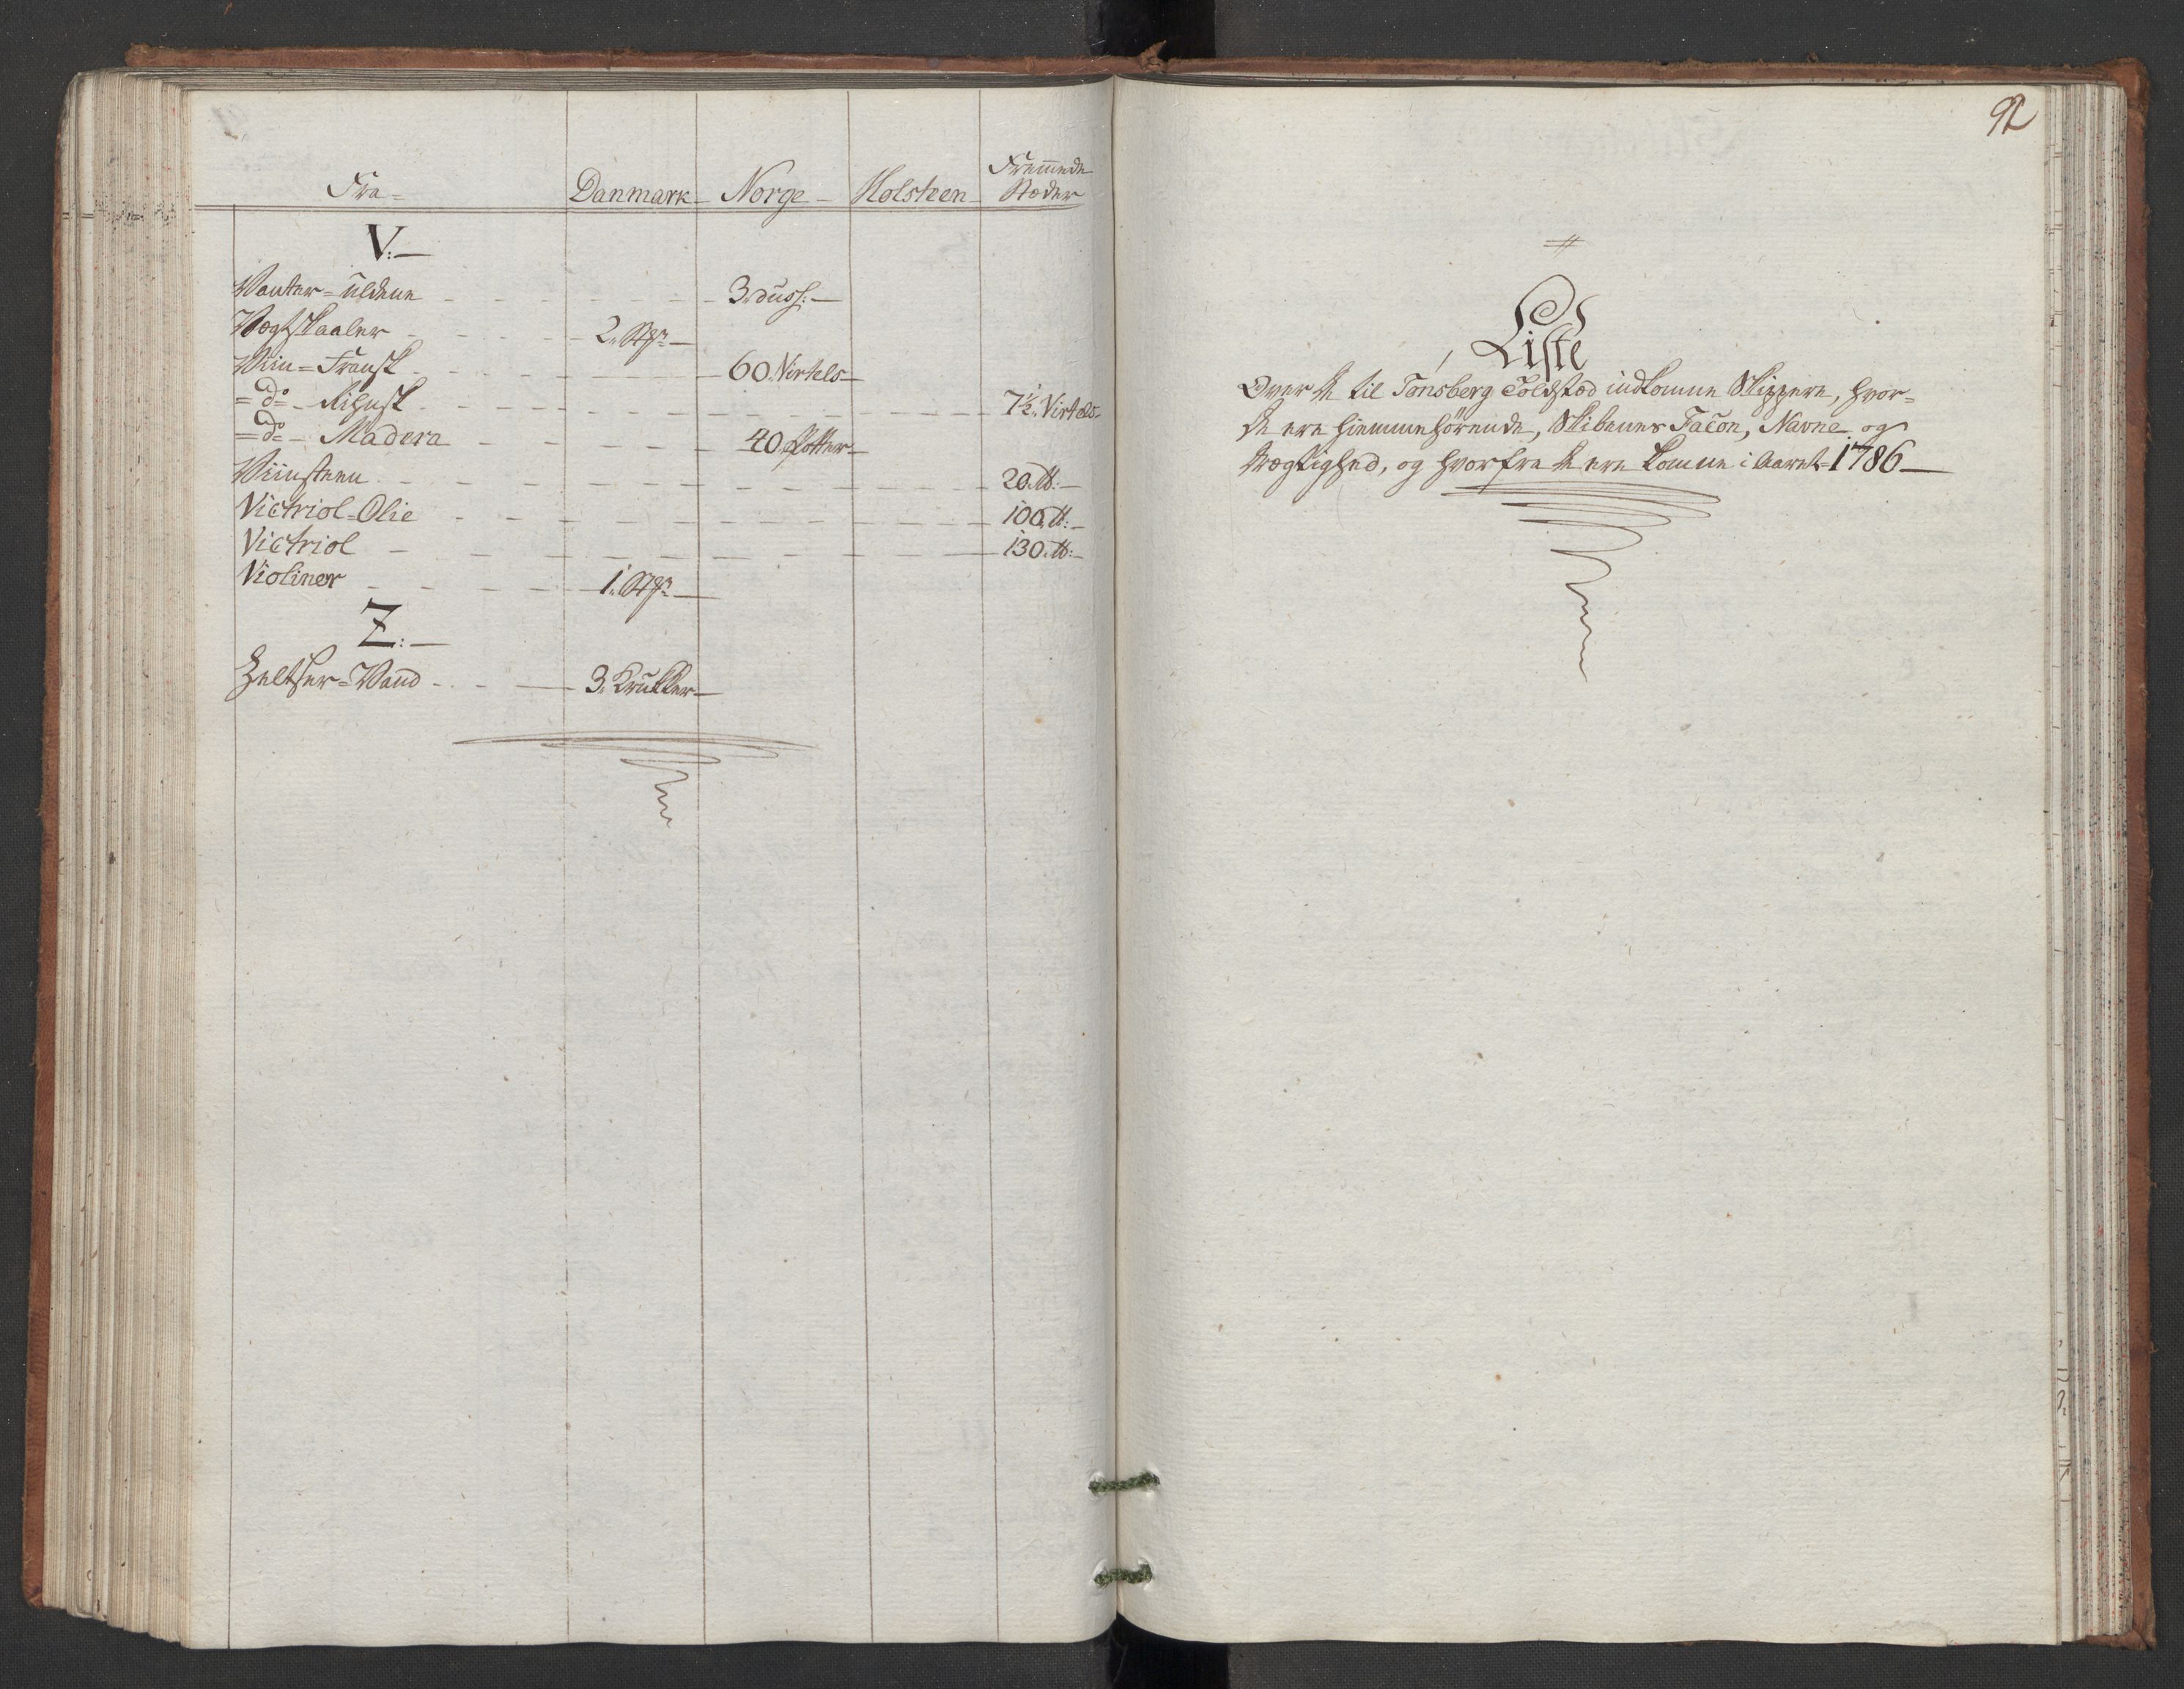 Fra= Danmark- Norge- Holsteen- Fremmede Stæder
V:-
Vanter=uldene - 3. duss:-
Vægtskaaler - 2. Stkr-
Viin=Fransk - 60. Virtels-
=do- Rihnsk - 7½. Virtels-
=do- Madera - 40. Potter-
Viinsteen - 20. ℔:-
Victriol-Olie - 100. ℔:-
Victriol - 130. ℔:-
Violiner - 1. Stkr-
Z:-
Zeltser=Vand - 3. Krukker-
92
Liste
Over de til Tønsberg Toldstæd indkomne Skippere, hvor=
de ere hiemmehörende, Skibenes Facon, Navne og
drægtighed, og hvorfra de ere komne i Aaret=1786-